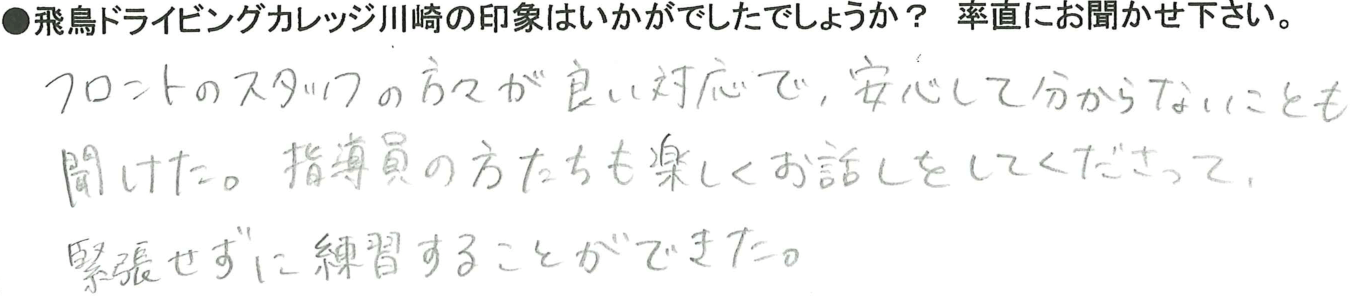 ●飛鳥ドライビングカレッジ川崎の印象はいかがでしたでしょうか？　率直にお聞かせ下さい。
フロントのスタッフの方々が良い対応で、安心して分からないことも
聞けた。指導員の方たちも楽しくお話しをしてくださって、
緊張せずに練習することができた。